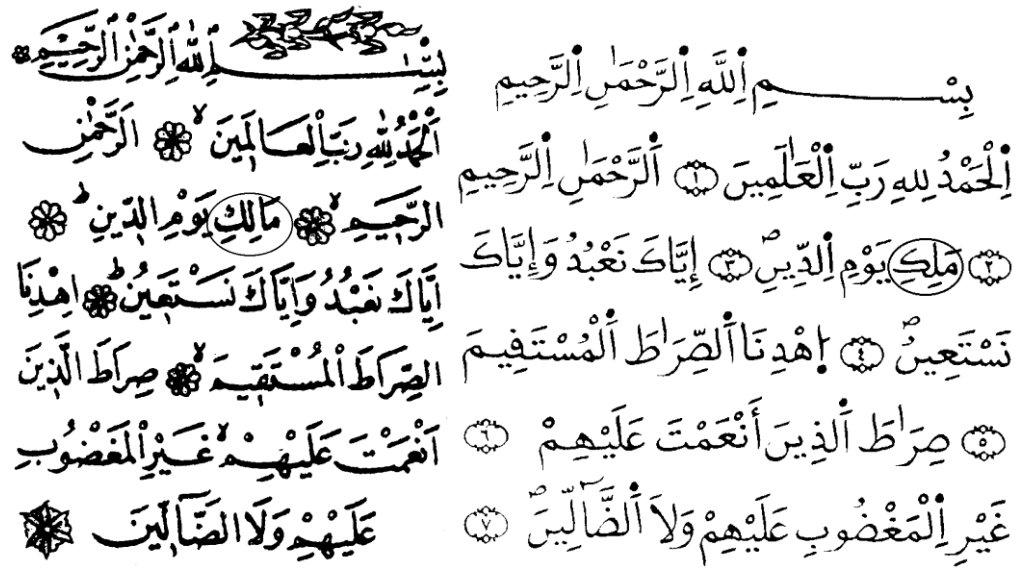 بِسْمِ اِللَّهِ اِلرَّحْمَٰنِ اِلرَّحِيمِ
اِلْحَمْدُ لِلهِ رَبِّ اِلْعَٰلَمِينَ ١ اَلرَّحْمَٰنِ اِلرَّحِيمِ
٢ مَلِكِ يَوْمِ اِلدِّينِ ٣ إِيَّاكَ نَعْبُدُ وَإِيَّاكَ
نَسْتَعِينُ ٤ اِهْدِنَا اَلصِّرَٰطَ اَلْمُسْتَقِيمَ
٥ صِرَٰطَ اَلذِينَ أَنْعَمْتَ عَلَيْهِمْ ٦
غَيْرِ اِلْمَغْضُوبِ عَلَيْهِمْ وَلَا اَلضَّآلِّينَ ٧
بِسْمِ اللهِ الرَّحْمٰنِ الرَّحِيمِ
اَلْحَمْدُ لِلهِ رَبِّ الْعَالَمِينَ اَلرَّحْمٰنِ
الرَّحِيمِ مَالِكِ يَوْمِ الدِّينِ
اِيَّاكَ نَعْبُدُ وَاِيَّاكَ نَسْتَعِينُ اِهْدِنَا
الصِّرَاطَ الْمُسْتَقِيمَ صِرَاطَ الَّذِينَ
اَنْعَمْتَ عَلَيْهِمْ غَيْرِ الْمَغْضُوبِ
عَلَيْهِمْ وَلَا الضَّآلِّينَ